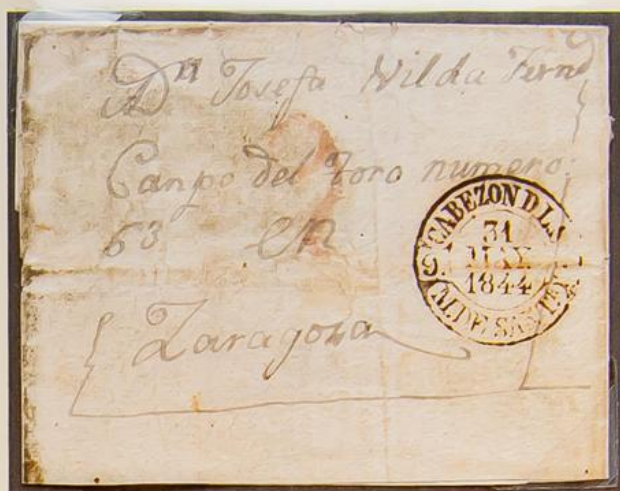 A Dⁿ Josefa Wilda Fernᵈ
Canpo del Toro numero
63 en
Zaragoza
CABEZON D L S
31
MAY.
1844